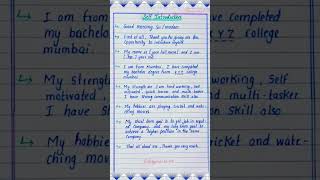 Self Introduction
Good Morning Sir/madam
First of all, Thank you for giving me this
opportunity to introduce myself
My name is (your full name) and I am
I am from Mumbai, I have completed
my bachelor degree from x y z college
mumbai
My strength are I am hard working, Self
motivated, quick learner and multi-tasker
I have strong communication skill also
My hobbies are playing cricket and watc-
ching movies
My short term goal is to get job in reputed
Company and my long term goal is
achieve a higher position in the same
Company
That all about me. Thank you very much.
I am from
have completed
my bachelo
x y z college
mumbai
My streng
working, Self
motivated
nd multi-tasker
I have S
on skill also
My hobbie
ricket and wate-
ching move